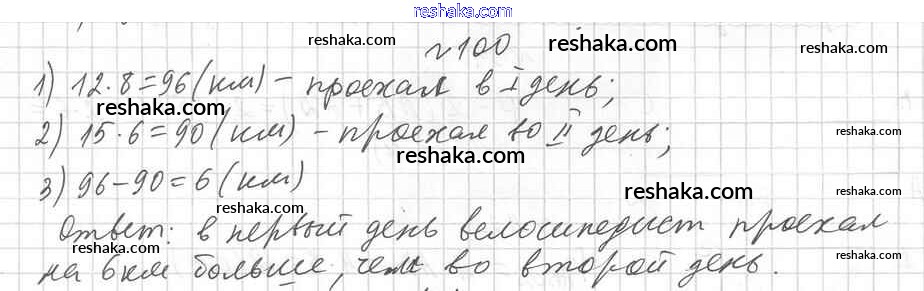 reshaka.com
№100
reshaka.com
reshaka.com
1) 12·8=96(км) – проехал в I день;
reshaka.com
reshaka.com
2) 15·6=90(км) – проехал во II день;
reshaka.com
reshaka.com
3) 96–90=6(км)
reshaka.com
reshaka.com
Ответ: в первый день велосипедист проехал
reshaka.com
reshaka.com
на 6км больше, чем во второй день.
reshaka.com